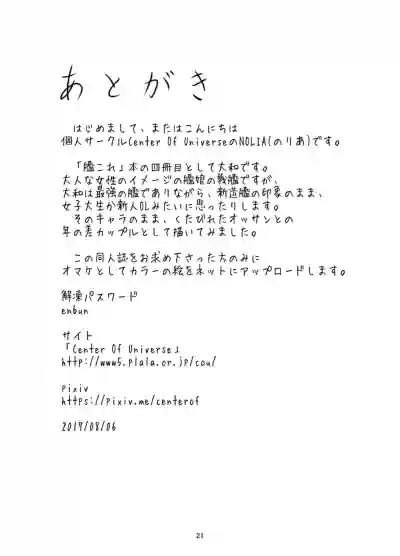 あとがき
はじめまして、またはこんにちは
個人サークルCenter Of UniverseのNOLIA(のりあ)です。
「艦これ」本の四冊目として大和です。
大人な女性のイメージの艦娘の戦艦ですが、
大和は最強の艦でありながら、新造艦の印象のまま、
女子大生か新人OLみたいに思ったりします。
そのキャラのまま、くたびれたオッサンとの
年の差カップルとして描いてみました。
この同人誌をお求め下さった方のみに
オマケとしてカラーの絵をネットにアップロードします。
解凍パスワード
enbun
サイト
「Center Of Universe」
http://www5.plala.or.jp/cou/
pixiv
https://pixiv.me/centerof
2017/08/06
21